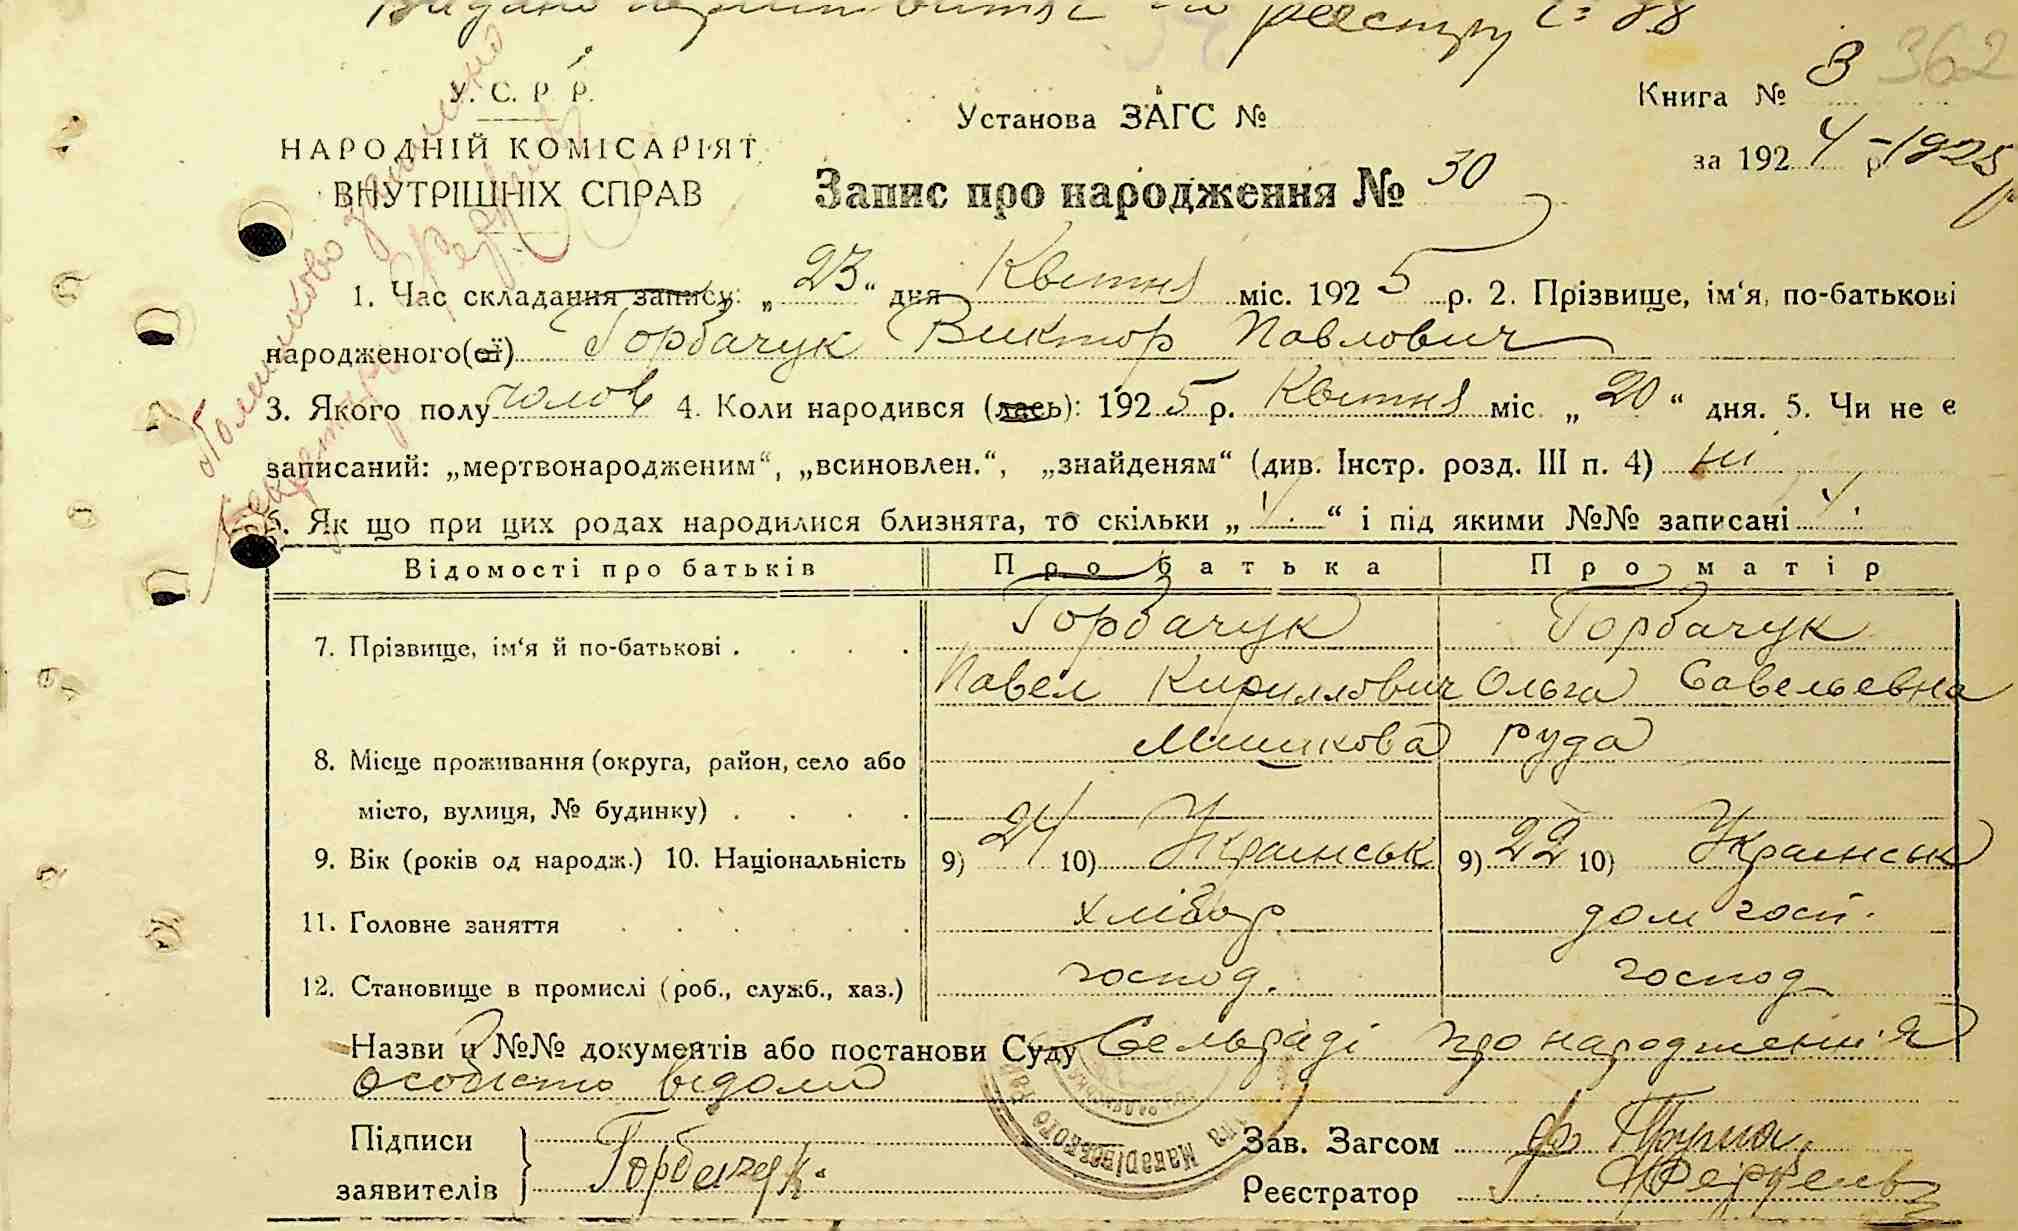 Видано по реєстру № 88
362
У. С. Р. Р.
НАРОДНІЙ КОМІСАРІЯТ
ВНУТРІШНІХ СПРАВ
Установа ЗАГС №
Книга № 3
за 192 4 р -1925 р
Запис про народження № 30
Помилково
1. Час складання запису: „ 23 “ дня Квітня міс. 192 5 р. 2. Прізвище, ім'я, по-батькові
народженого(ої) Горбачук Виктор Павлович
3. Якого полу чолов 4. Коли народився (лась): 192 5 р. Квітня міс. „ 20 “ дня. 5. Чи не є
записаний: „мертвонародженим“, „всиновлен.“, „знайденям“ (див. Інстр. розд. III п. 4) ні
. Як що при цих родах народилися близнята, то скільки „ “ і під якими №№ записані
Відомості про батьків Про батька Про матір
7. Прізвище, ім'я й по-батькові . . . . Горбачук Горбачук
Павел Кириллович Ольга Савельевна
8. Місце проживання (округа, район, село або Мишкова Руда
місто, вулиця, № будинку) . . . .
9. Вік (років од народж.) 10. Національність 9) 24 10) Українськ 9) 22 10) Українськ
11. Головне заняття . . . . . . хлібор. дом госп.
12. Становище в промислі (роб., служб., хаз.) господ. господ
Назви й №№ документів або постанови Суду Сельраді про народження
особисто відомо
Макарівського
Підписи
заявителів } Горбачук.
Зав. Загсом
Реєстратор